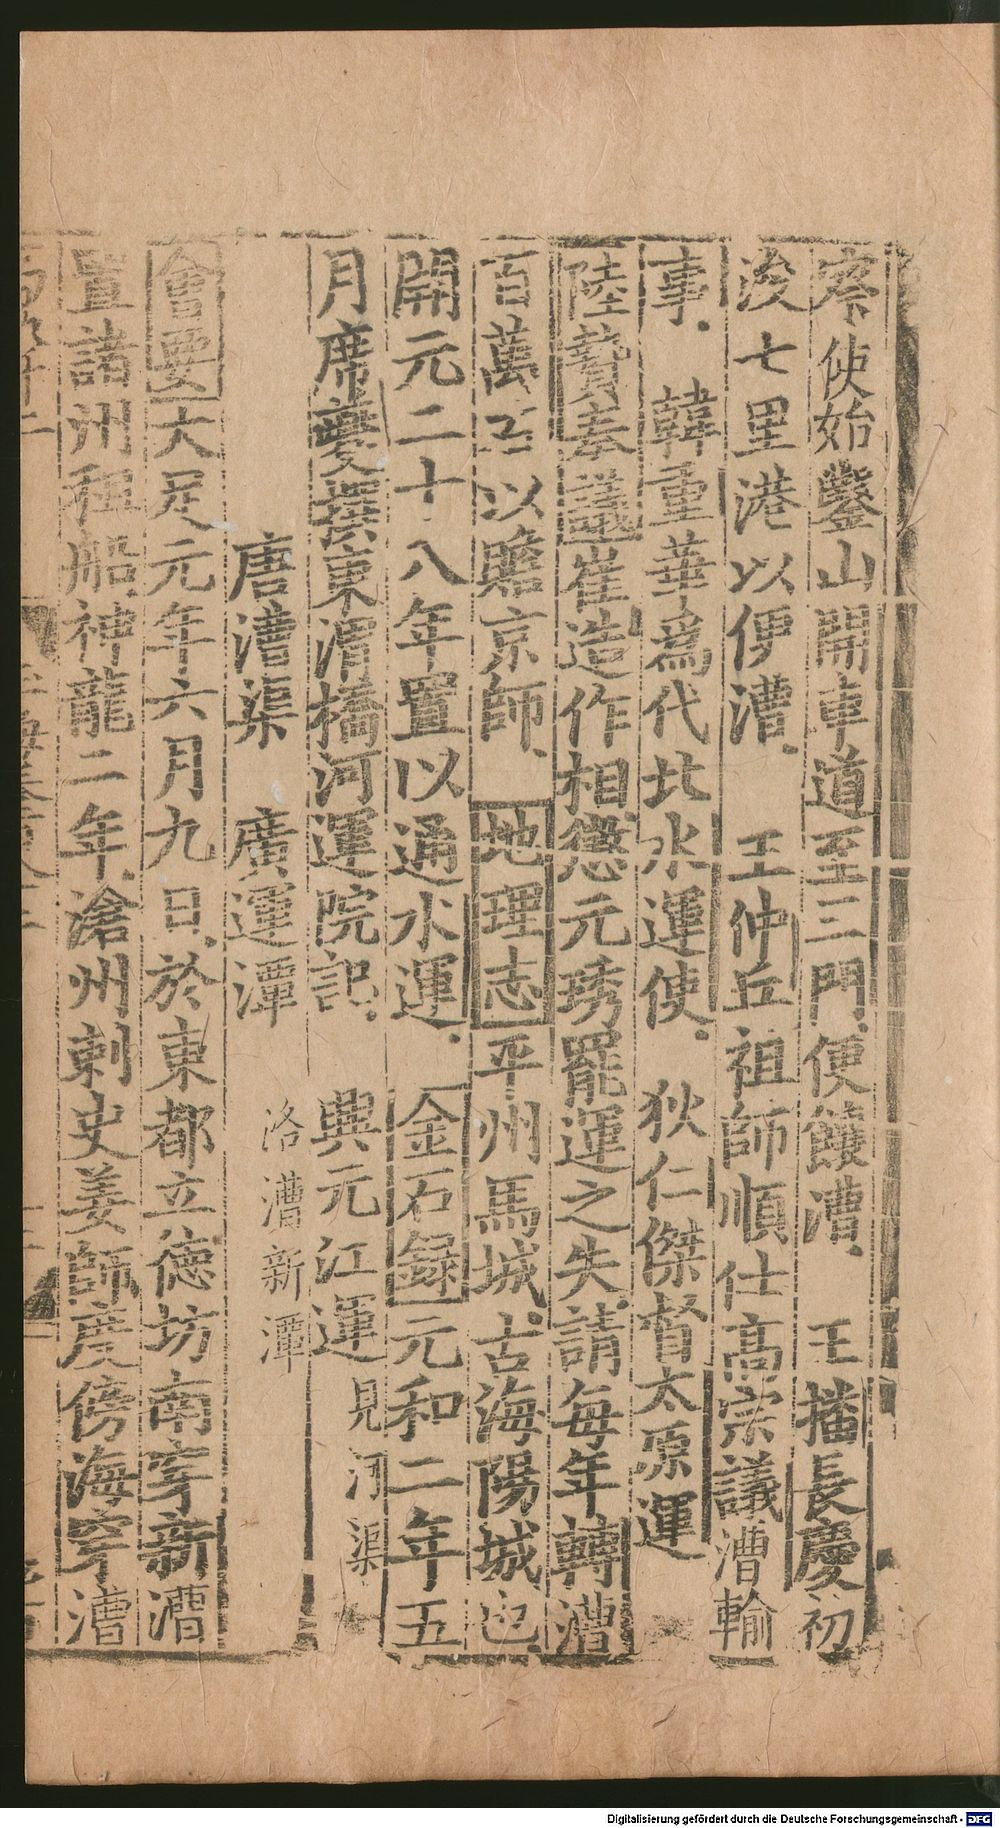 察使始鑿山開車道至三門便饋漕　王播長慶初
浚七里港以便漕　王仲丘祖師順仕高宗議漕輸
事　韓重華爲代北水運使　狄仁傑督太原運
陸贄奏議崔造作相懲元琇罷運之失請每年轉漕
百萬石以贍京師　地理志平州馬城古海陽城也
開元二十八年置以通水運　金石錄元和二年五
月席夔撰東渭橋河運院記　興元江運見河渠
唐漕渠　廣運潭　洛漕新潭
會要大足元年六月九日於東都立德坊南穿新漕
置諸州租船神龍二年滄州刺史姜師度傍海穿漕
Digitalisierung gefördert durch die Deutsche Forschungsgemeinschaft - DFG